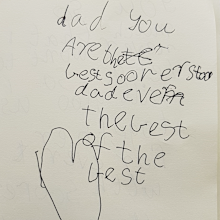 dad you
Are the
best
dad ever
the best
of the
best